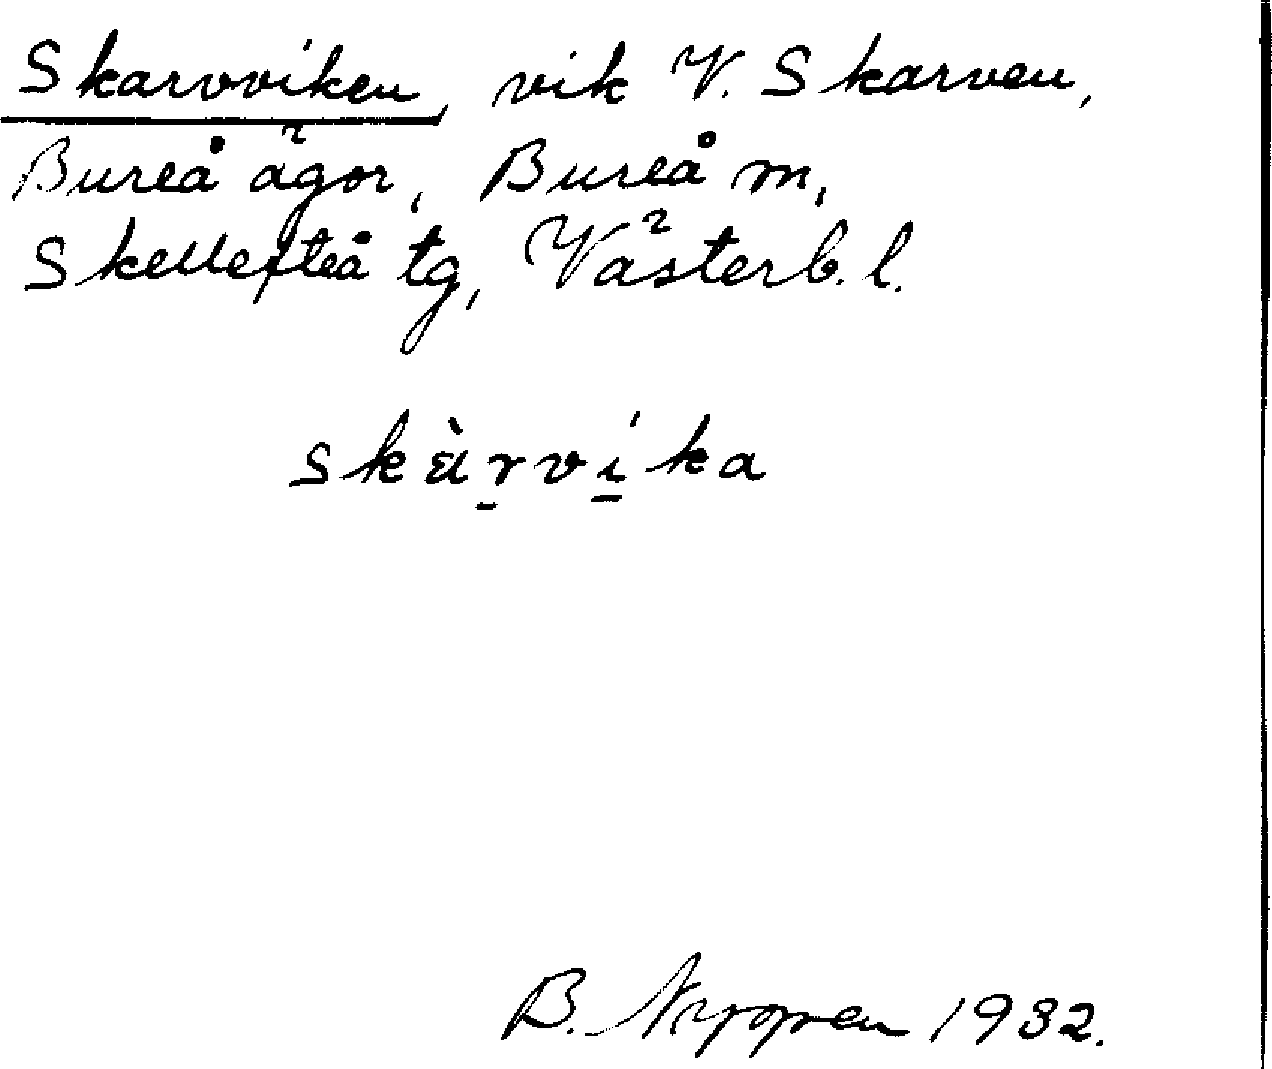 Skarvviken, vik V. Skarven,
Bureå ägor, Bureå m,
Skellefteå tg, Västerb. l.
skàrvíka
B. Nygren 1932.